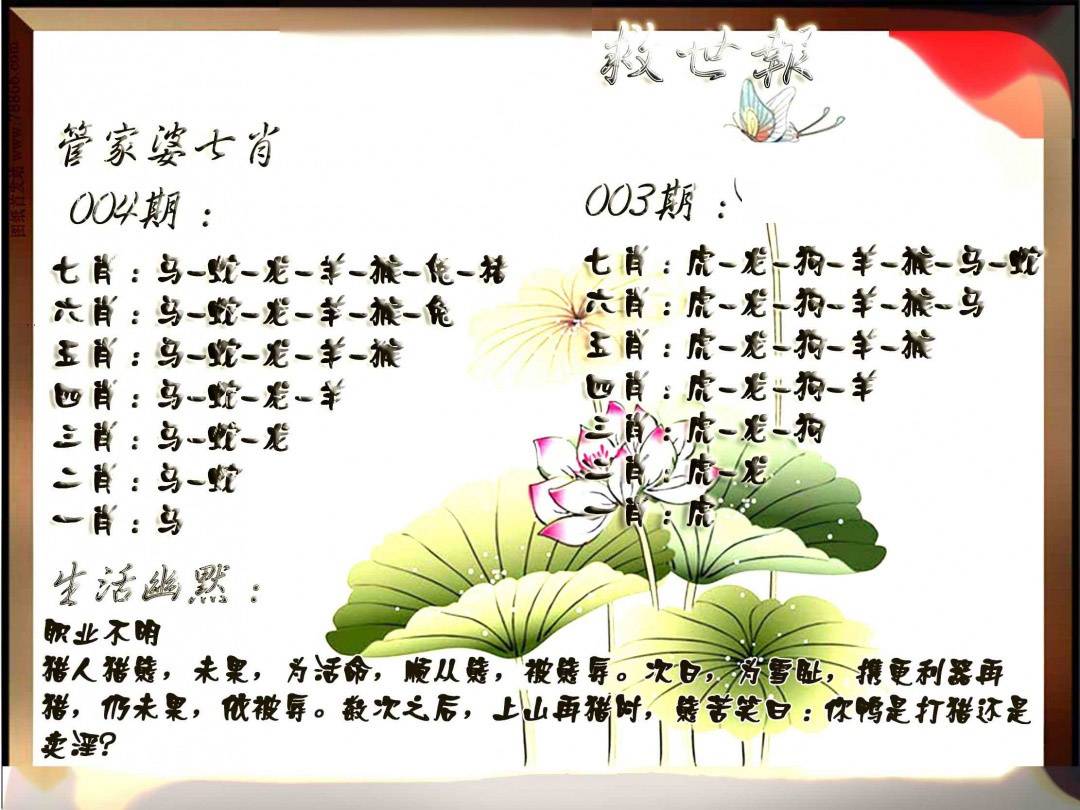 救世報
图纸首发站 www.78866.com
管家婆七肖
004期：
七肖：马-蛇-龙-羊-猴-兔-猪
六肖：马-蛇-龙-羊-猴-兔
五肖：马-蛇-龙-羊-猴
四肖：马-蛇-龙-羊
三肖：马-蛇-龙
二肖：马-蛇
一肖：马
003期：
七肖：虎-龙-狗-羊-猴-马-蛇
六肖：虎-龙-狗-羊-猴-马
五肖：虎-龙-狗-羊-猴
四肖：虎-龙-狗-羊
三肖：虎-龙-狗
二肖：虎-龙
一肖：虎
生活幽默：
职业不明
猎人猎熊，未果，为活命，顺从熊，被熊辱。次日，为雪耻，携更利器再
猎，仍未果，依被辱。数次之后，上山再猎时，熊苦笑曰：你鸭是打猎还是
卖淫？